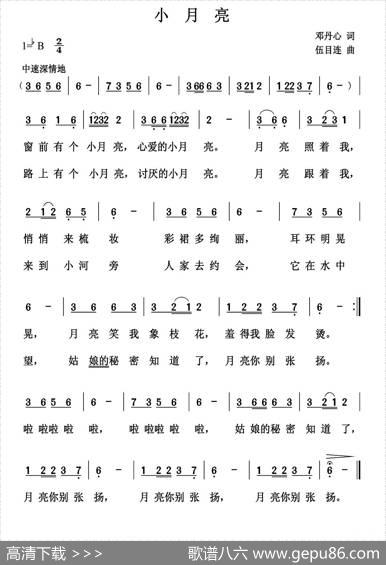 小 月 亮
1=♭B 2/4
邓丹心 词
伍目连 曲
中速深情地
( 3 6 5 6 | 6 - | 7 3 5 6 | 6 - | 3 66 6 3 | 3 21 2 | 1 22 3 7 | 6 - )
3 6 1 6 | 1232 2 | 3 6 6 3 1232 | 2 - | 6 3 3 | 3 2 3 1
窗 前 有 个 小月 亮, 心爱的小月 亮。 月 亮 照着 我,
路 上 有 个 小月 亮, 讨厌的小月 亮。 月 亮 跟着 我,
2 1 2 6 5 | 6 - | 3 6 1 2 3 | 3 - | 3 5 3 7
悄 悄 来梳 妆 彩裙多绚 丽, 耳环明晃
来 到 小河 旁 人家去约 会, 它在水中
6 - | 3 6 6 3 | 3 2 3 1 | 1 2 2 3 7 | 6 -
晃, 月亮笑我 象枝花, 羞得我脸发 烫。
望, 姑娘的秘密 知道了, 月亮你别张 扬。
3 6 5 6 | 6 - | 7 3 5 6 | 6 - | 3 66 6 3 | 3 2 1 2
啦 啦啦 啦 啦, 啦 啦啦 啦 啦, 姑 娘的秘 密 知道 了,
1 22 3 7 | 6 - | 1 22 3 7 | 6 - | 1 22 3 7 | 6 -
月 亮你别 张 扬, 月 亮你别 张 扬, 月 亮你别 张 扬。
高清下载 >>>
歌谱八六 www.gepu86.com